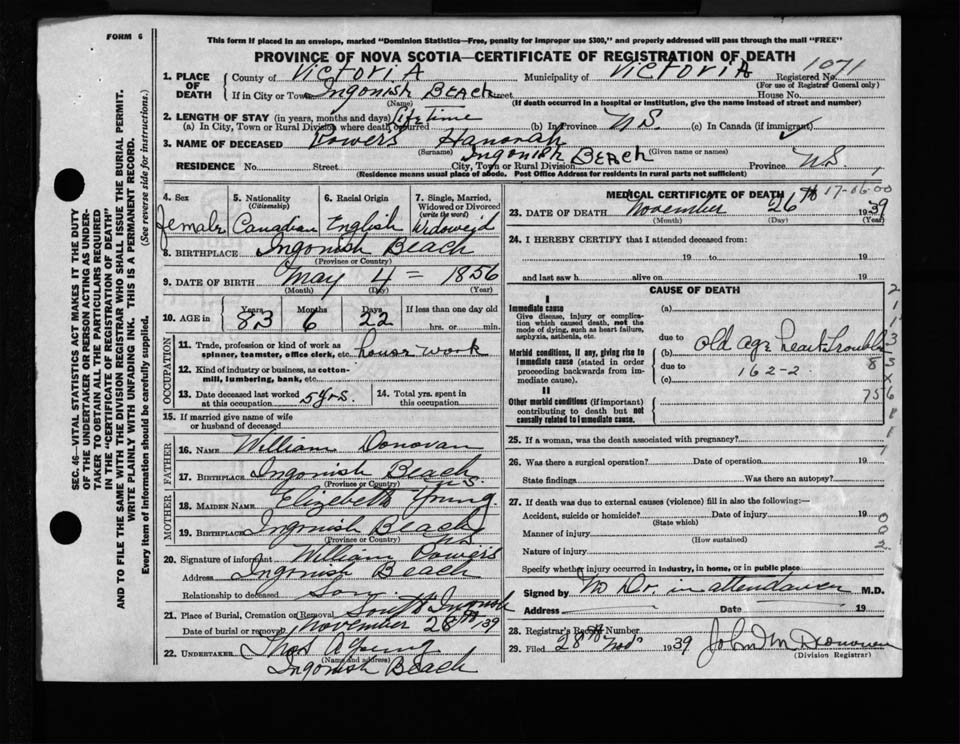 FORM 6
This form if placed in an envelope, marked "Dominion Statistics—Free, penalty for improper use $300," and properly addressed will pass through the mail "FREE"
PROVINCE OF NOVA SCOTIA—CERTIFICATE OF REGISTRATION OF DEATH
1. PLACE OF DEATH
County of Victoria Municipality of Victoria Registered No. 1071
(For use of Registrar General only)
If in City or Town Ingonish Beach Street House No.
(Name) (If death occurred in a hospital or institution, give the name instead of street and number)
2. LENGTH OF STAY (in years, months and days) Lifetime
(a) In City, Town or Rural Division where death occurred (b) In Province N.S. (c) In Canada (if immigrant)
3. NAME OF DECEASED Powers Hannah
(Surname) (Given name or names)
RESIDENCE No. Street City, Town or Rural Division Ingonish Beach Province N.S.
(Residence means usual place of abode. Post Office Address for residents in rural parts not sufficient)
SEC. 46—VITAL STATISTICS ACT MAKES IT THE DUTY
OF THE UNDERTAKER OR PERSON ACTING AS UNDER-
TAKER TO OBTAIN ALL THE PARTICULARS REQUIRED
IN THE "CERTIFICATE OF REGISTRATION OF DEATH"
AND TO FILE THE SAME WITH THE DIVISION REGISTRAR WHO SHALL ISSUE THE BURIAL PERMIT.
WRITE PLAINLY WITH UNFADING INK. THIS IS A PERMANENT RECORD.
Every item of information should be carefully supplied. (See reverse side for instructions.)
4. Sex female
5. Nationality (Citizenship) Canadian
6. Racial Origin English
7. Single, Married, Widowed or Divorced (write the word) Widowed
8. BIRTHPLACE Ingonish Beach
(Province or Country)
9. DATE OF BIRTH May 4 = 1856
(Month) (Day) (Year)
10. AGE in Years 83 Months 6 Days 22 If less than one day old hrs. or min.
OCCUPATION
11. Trade, profession or kind of work as spinner, teamster, office clerk, etc. house work
12. Kind of industry or business, as cotton-mill, lumbering, bank, etc.
13. Date deceased last worked at this occupation 5 yrs.
14. Total yrs. spent in this occupation
15. If married give name of wife or husband of deceased
FATHER
16. NAME William Donovan
17. BIRTHPLACE Ingonish Beach N.S.
(Province or Country)
MOTHER
18. MAIDEN NAME Elizebeth Young.
19. BIRTHPLACE Ingonish Beach N.S.
(Province or Country)
20. Signature of informant William Powers
Address Ingonish Beach
Relationship to deceased Son
21. Place of Burial, Cremation or Removal South Ingonish
Date of burial or removal November 28th 39
22. UNDERTAKER Thos A Young
(Name and address)
Ingonish Beach
MEDICAL CERTIFICATE OF DEATH
17-06-00
23. DATE OF DEATH November 26th 1939
(Month) (Day) (Year)
24. I HEREBY CERTIFY that I attended deceased from:
19 to 19
and last saw h alive on 19
CAUSE OF DEATH
I
Immediate cause (a)
Give disease, injury or complication which caused death, not the mode of dying, such as heart failure, asphyxia, asthenia, etc.
due to
Morbid conditions, if any, giving rise to immediate cause (stated in order proceeding backwards from immediate cause).
(b) old age heart trouble
due to 162-2
(c)
II
Other morbid conditions (if important) contributing to death but not causally related to immediate cause.
25. If a woman, was the death associated with pregnancy?
26. Was there a surgical operation? Date of operation 19
State findings Was there an autopsy?
27. If death was due to external causes (violence) fill in also the following:—
Accident, suicide or homicide? Date of injury 19
(State which)
Manner of injury
(How sustained)
Nature of injury
Specify whether injury occurred in industry, in home, or in public place
Signed by No Dr. in attendance M.D.
Address Date 19
28. Registrar's Record Number
29. Filed 28th Nov 1939 John M Donovan
(Division Registrar)